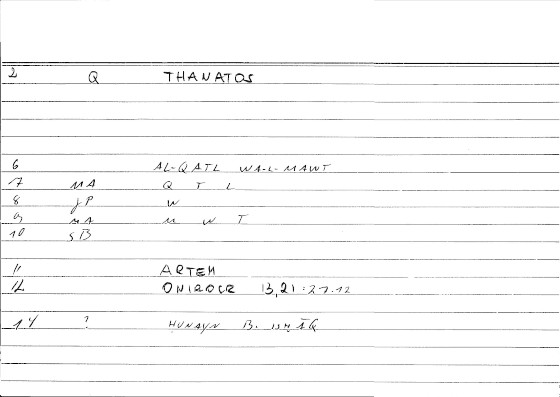 2 Q THANATOS
6 AL-QATL WA-L-MAWT
7 MA Q T L
8 JP W
9 MA M W T
10 SB
11 ARTEM
12 ONIROCR 13,21:27.12
14 ? HUNAYN B. ISḤĀQ